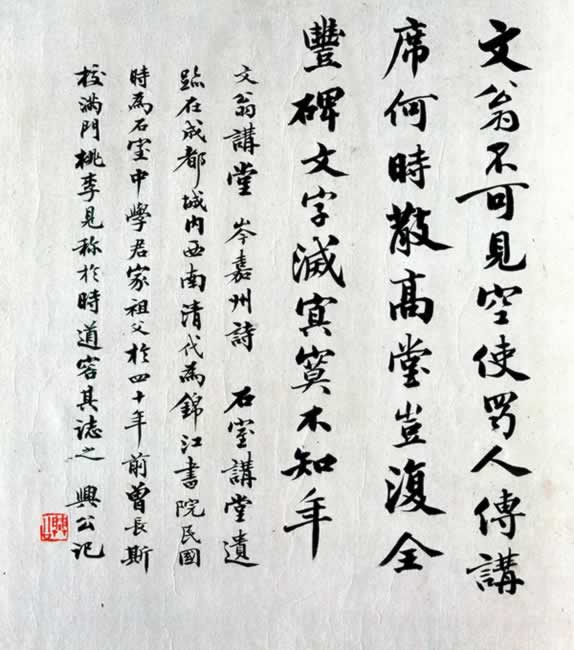 文翁不可見空使蜀人傳講
席何時散高堂豈復全
豐碑文字滅冥寞不知年
文翁講堂 岑嘉州詩 石室講堂遺
跡在成都城内西南清代為錦江書院民國
時為石室中學君家祖父於四十年前曾長斯
校滿門桃李見称於時道容其誌之 興公記